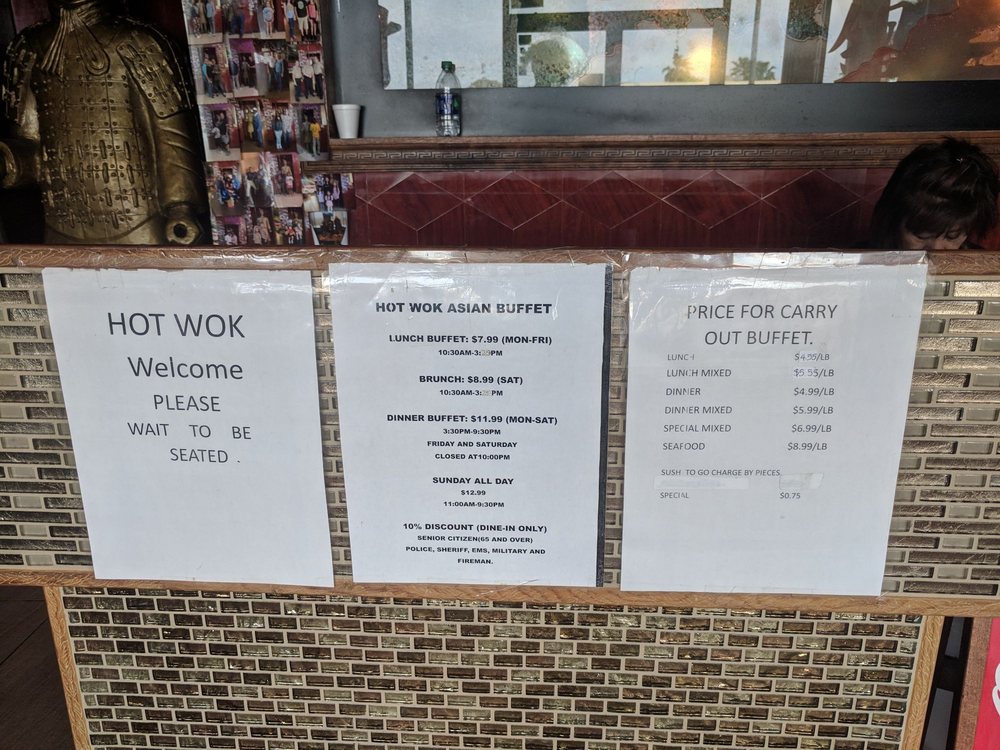 HOT WOK
Welcome
PLEASE
WAIT TO BE
SEATED .
HOT WOK ASIAN BUFFET
LUNCH BUFFET: $7.99 (MON-FRI)
10:30AM-3:29PM
BRUNCH: $8.99 (SAT)
10:30AM-3:PM
DINNER BUFFET: $11.99 (MON-SAT)
3:30PM-9:30PM
FRIDAY AND SATURDAY
CLOSED AT10:00PM
SUNDAY ALL DAY
$12.99
11:00AM-9:30PM
10% DISCOUNT (DINE-IN ONLY)
SENIOR CITIZEN(65 AND OVER)
POLICE, SHERIFF, EMS, MILITARY AND
FIREMAN.
PRICE FOR CARRY
OUT BUFFET.
LUNCH
LUNCH MIXED
DINNER $4.99/LB
DINNER MIXED $5.99/LB
SPECIAL MIXED $6.99/LB
SEAFOOD $8.99/LB
SUSH TO GO CHARGE BY PIECES.
SPECIAL $0.75